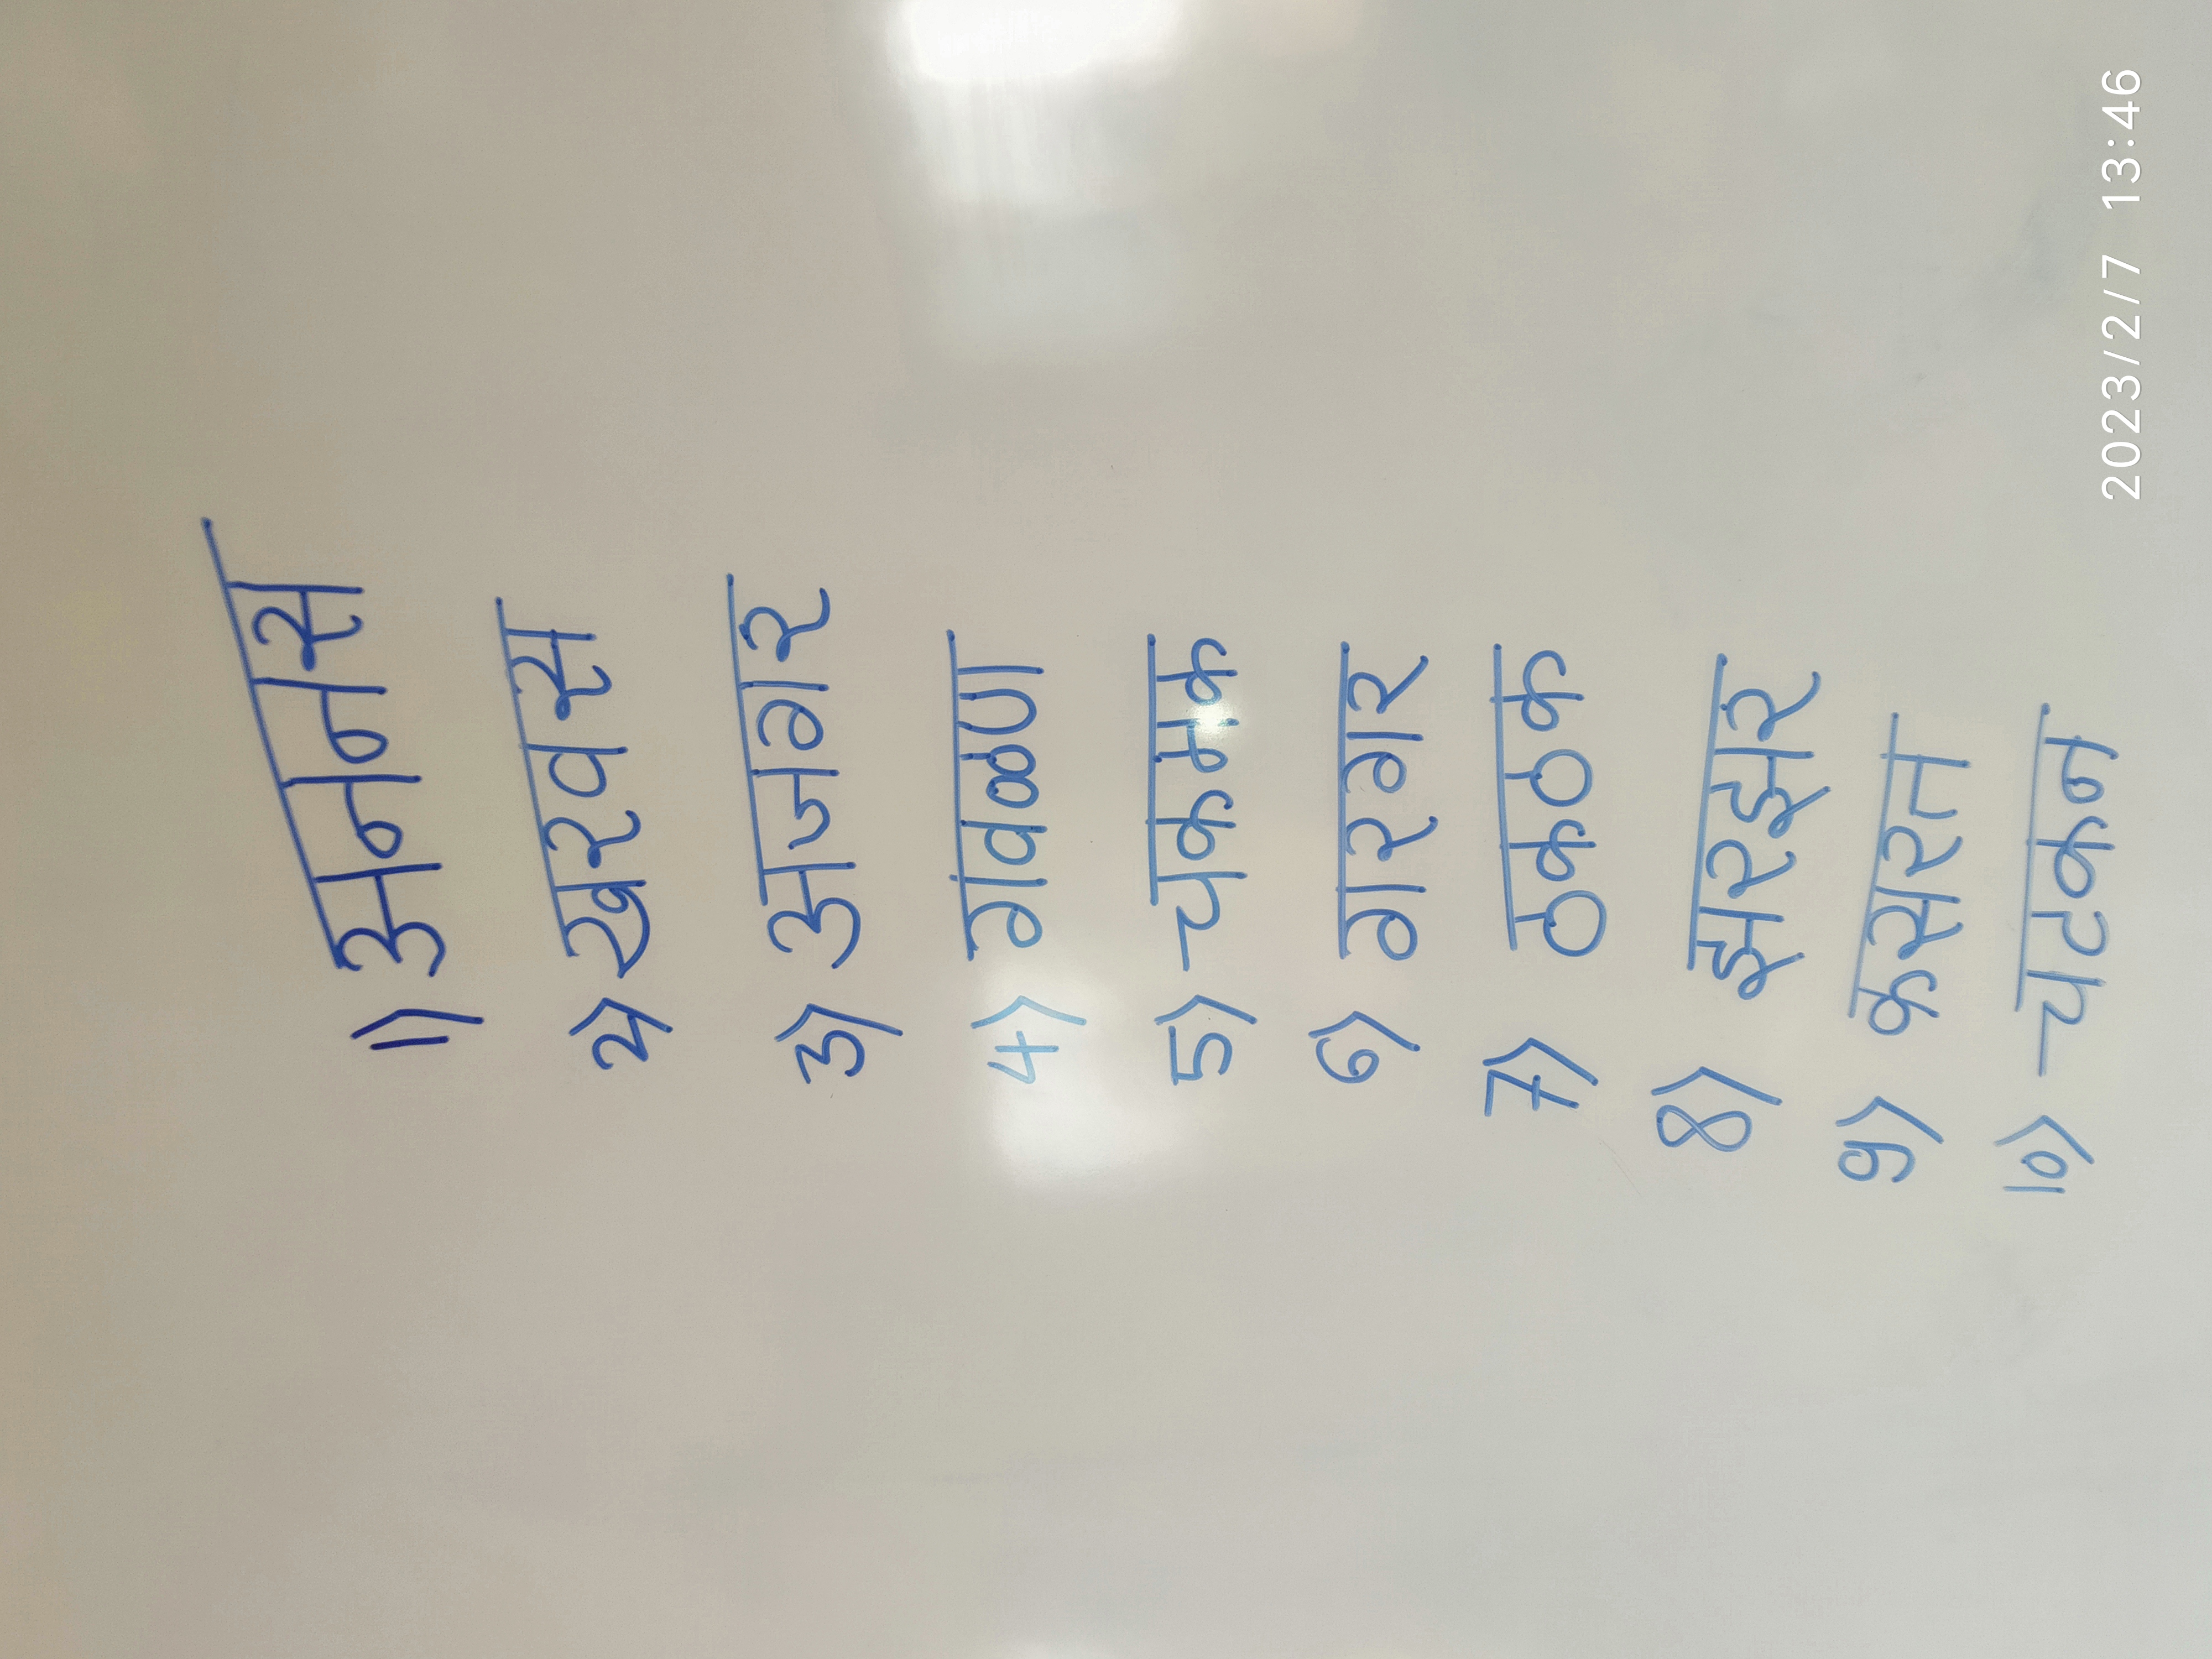 १) अननस
२) खरवस
३) अजगर
4) गवळण
5) चकमक
६) गरगर
7) ठकठक
8) झरझर
9) कसरत
१०) चटकन
2023/2/7 13:46